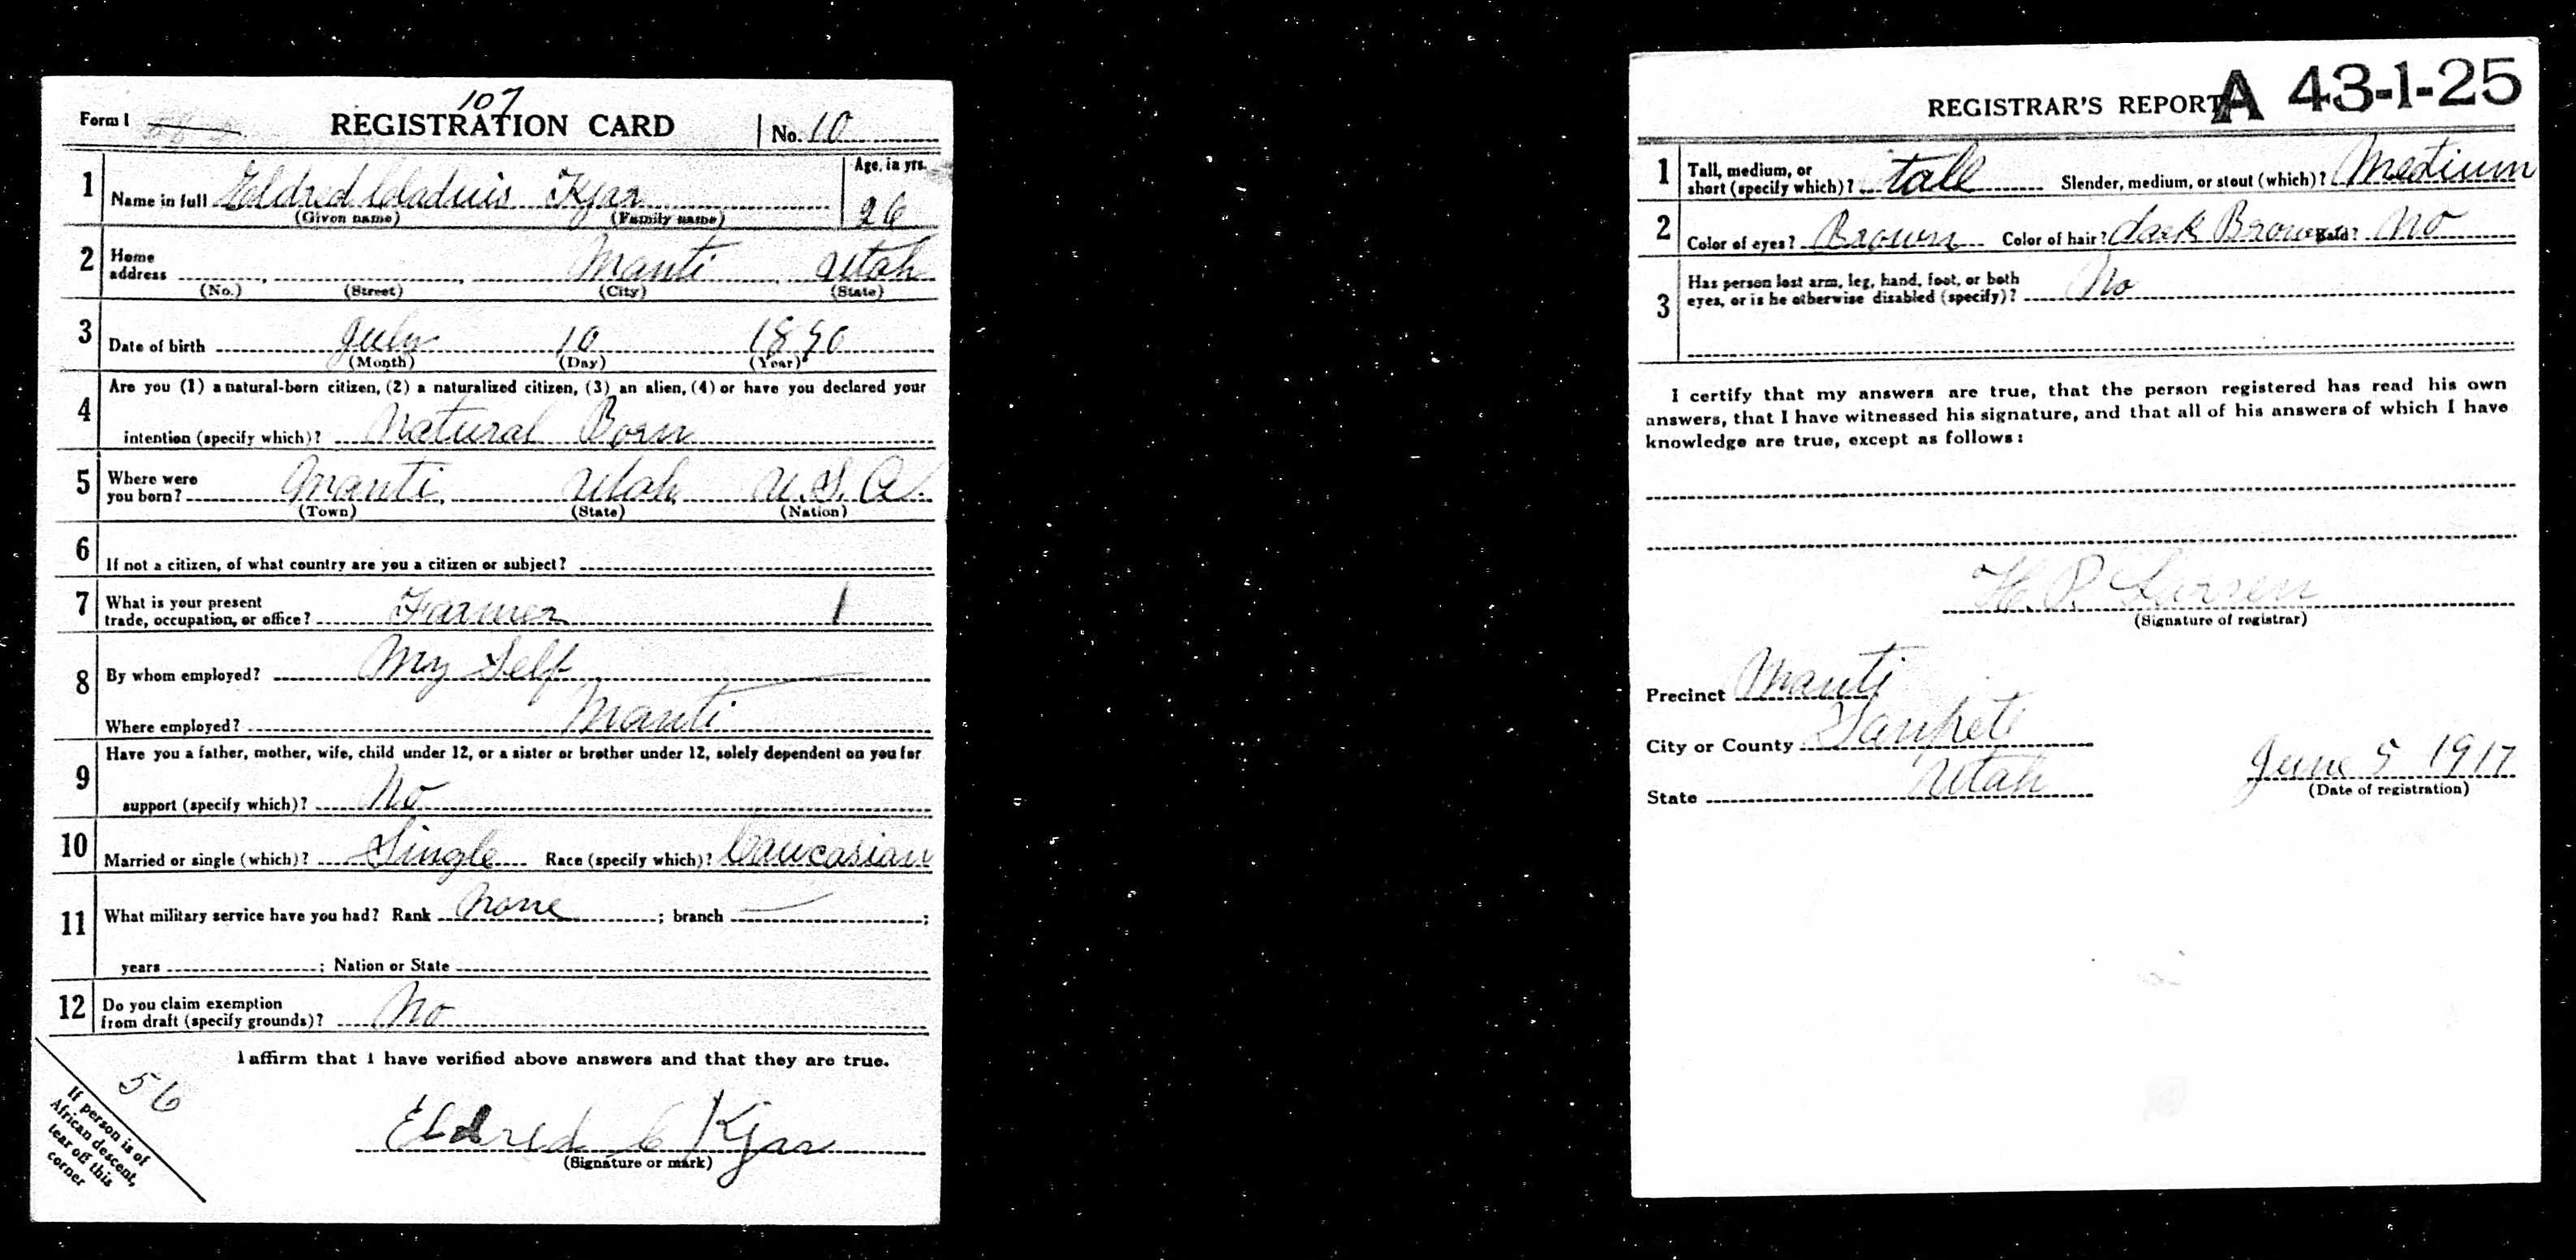 107
Form 1 REGISTRATION CARD No. 10
1 Name in full Eldred Claduis Kjar Age, in yrs. 26
(Given name) (Family name)
2 Home address Manti Utah
(No.) (Street) (City) (State)
3 Date of birth July 10 1890
(Month) (Day) (Year)
4 Are you (1) a natural-born citizen, (2) a naturalized citizen, (3) an alien, (4) or have you declared your
intention (specify which)? Natural Born
5 Where were you born? Manti, Utah U.S.A.
(Town) (State) (Nation)
6 If not a citizen, of what country are you a citizen or subject?
7 What is your present trade, occupation, or office? Farmer 1
8 By whom employed? My Self
Where employed? Manti
9 Have you a father, mother, wife, child under 12, or a sister or brother under 12, solely dependent on you for
support (specify which)? No
10 Married or single (which)? Single Race (specify which)? Caucasian
11 What military service have you had? Rank None ; branch — ;
years ; Nation or State
12 Do you claim exemption from draft (specify grounds)? No
I affirm that I have verified above answers and that they are true.
56
If person is of
African descent,
tear off this
corner
Eldred C Kjar
(Signature or mark)
REGISTRAR'S REPORT A 43-1-25
1 Tall, medium, or short (specify which)? tall Slender, medium, or stout (which)? Medium
2 Color of eyes? Brown Color of hair? dark Brown Bald? No
3 Has person lost arm, leg, hand, foot, or both
eyes, or is he otherwise disabled (specify)? No
I certify that my answers are true, that the person registered has read his own
answers, that I have witnessed his signature, and that all of his answers of which I have
knowledge are true, except as follows:
H. P. Larsen
(Signature of registrar)
Precinct Manti
City or County Sanpete
State Utah June 5 1917
(Date of registration)